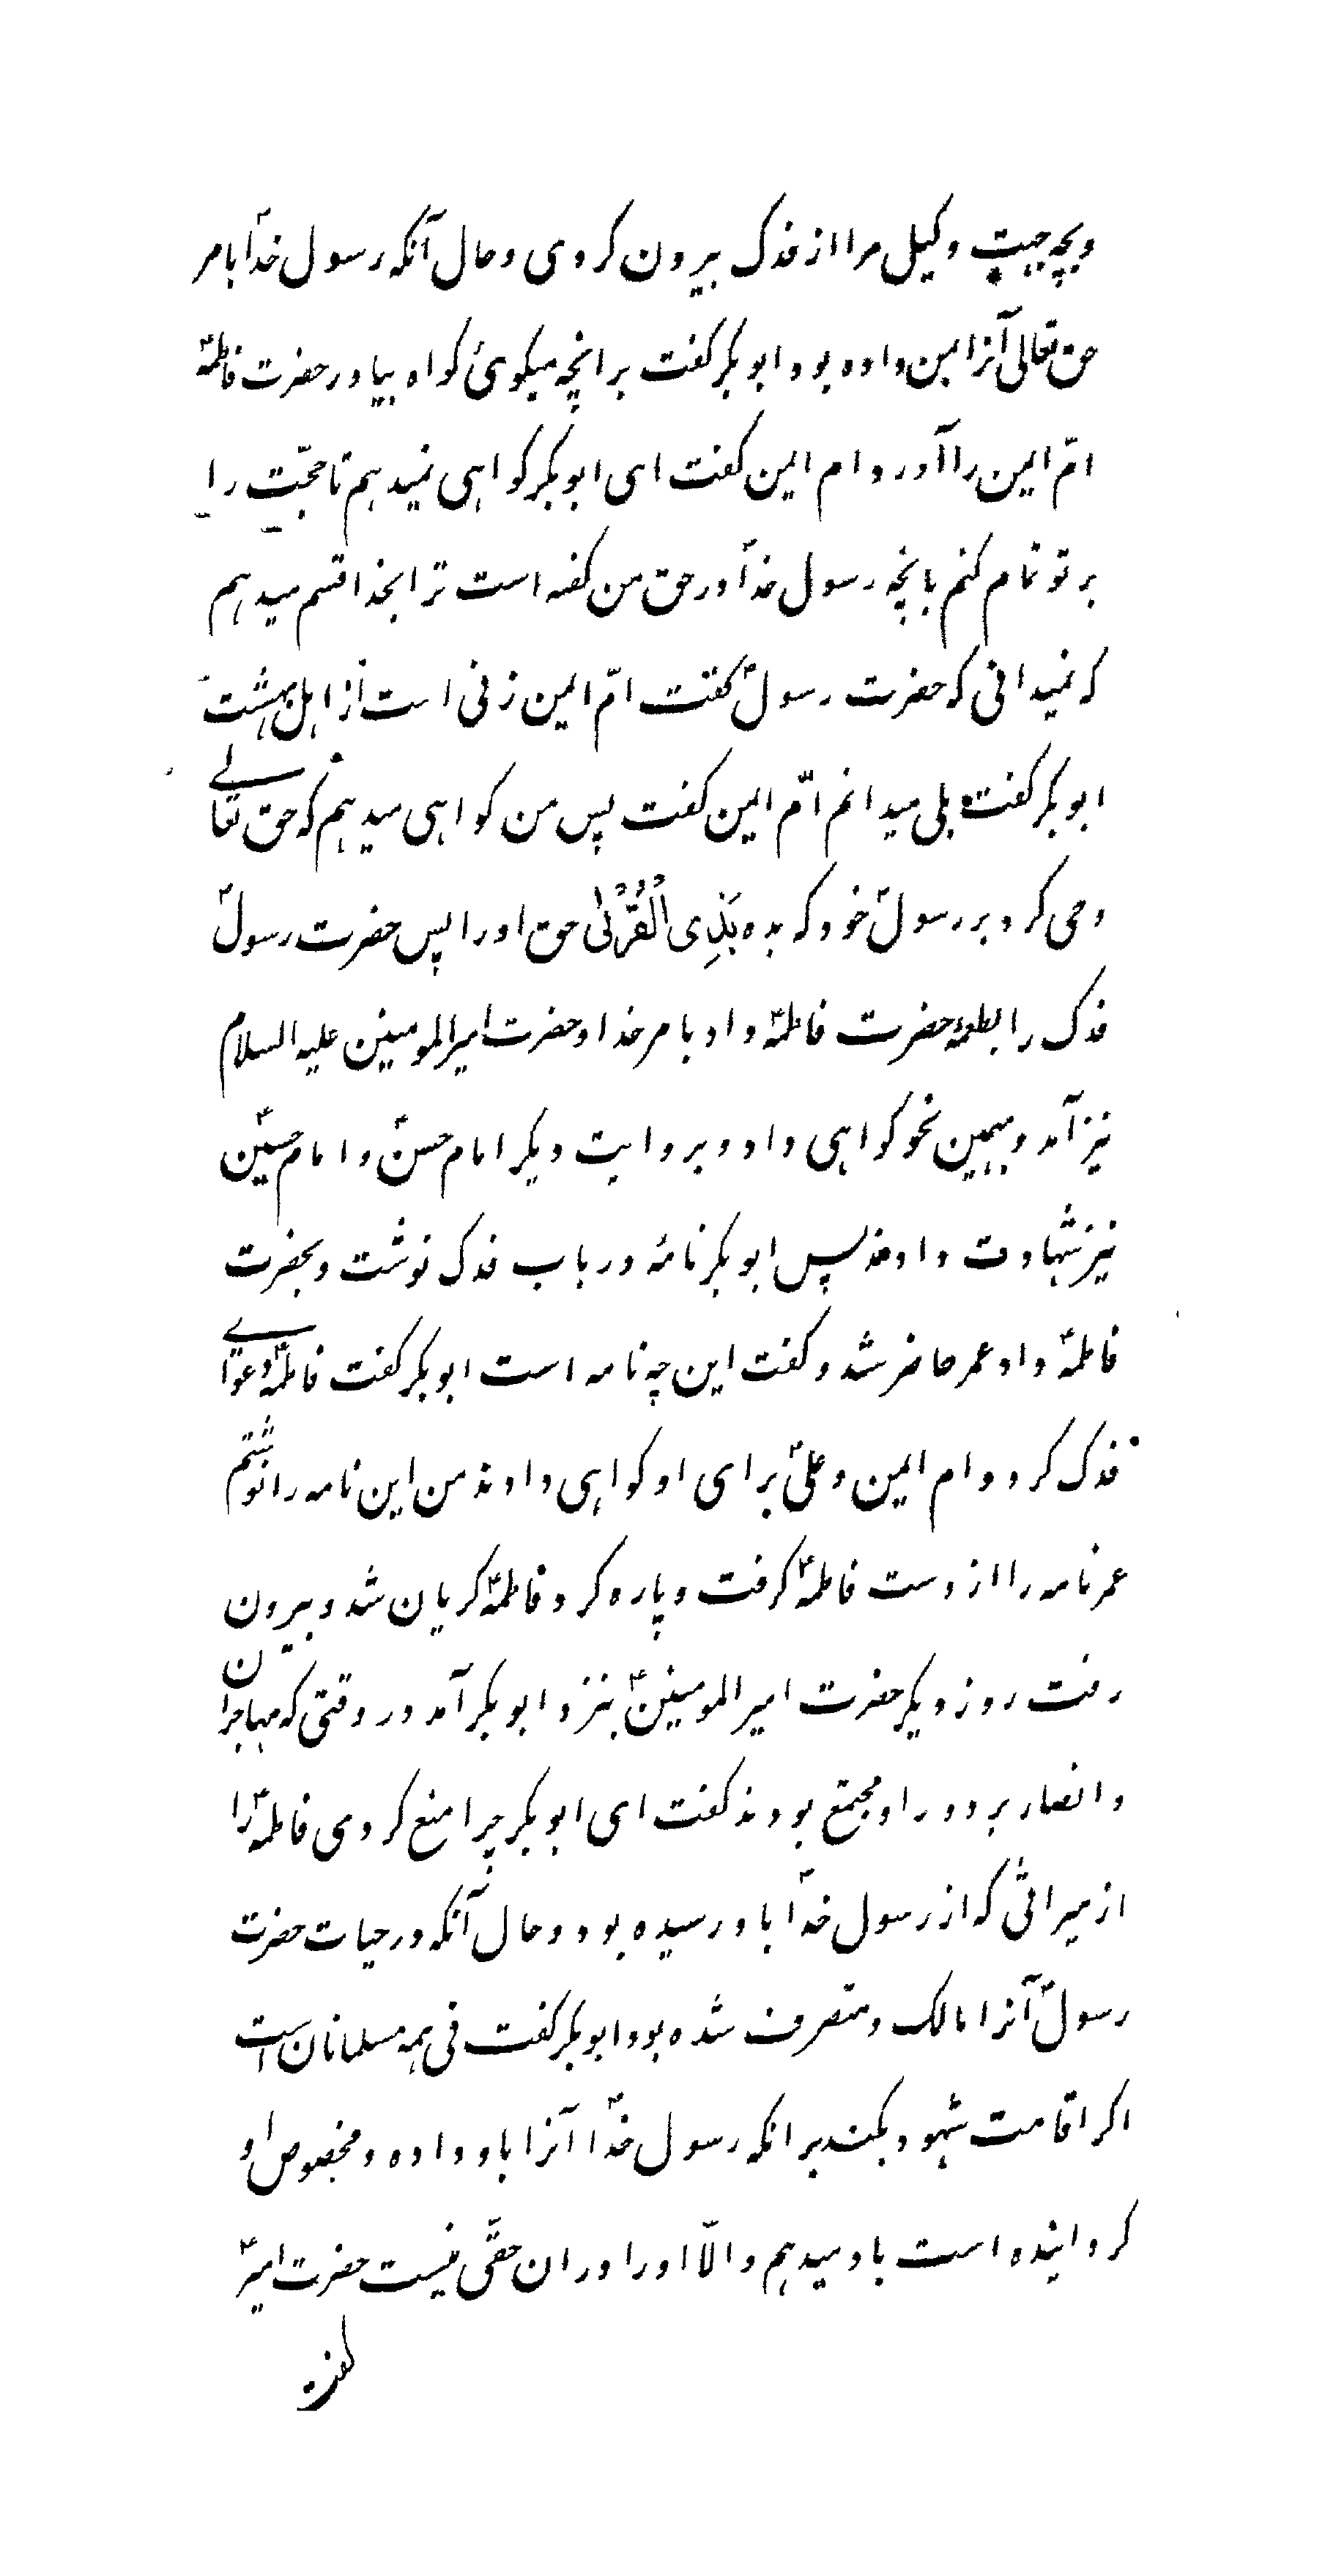 وبچه جهت وکیل مرا از فدک بیرون کردی و حال آنکه رسول خداؐ بامر
حق تعالی آنرا بمن داده بود ابو بکر گفت بر انچه میگوئی گواه بیاور حضرت فاطمهؑ
امّ ایمن را آورد ام ایمن گفت ای ابو بکر گواهی نمیدهم تا حجّت را
بر تو تمام کنم بانچه رسول خداؐ در حق من گفته است ترا بخدا قسم میدهم
که نمیدانی که حضرت رسولؐ گفت امّ ایمن زنی است از اهل بهشت
ابو بکر گفت بلی میدانم امّ ایمن گفت پس من گواهی میدهم که حق تعالے
وحی کرد بر رسولؐ خود که بده بَذِی الْقُرْبٰی حق او را پس حضرت رسولؐ
فدک را بطعمهٔ حضرت فاطمهؑ داد بامر خدا و حضرت امیرالمومنین علیه السلام
نیز آمد و بهمین نحو گواهی داد و بروایت دیگر امام حسنؑ و امام حسینؑ
نیز شهادت دادند پس ابو بکر نامهٔ در باب فدک نوشت و بحضرت
فاطمهؑ داد عمر حاضر شد و گفت این چه نامه است ابو بکر گفت فاطمهؑ دعواے
فدک کرد و ام ایمن و علیؑ برای او گواهی دادند من این نامه را نوشتم
عمر نامه را از دست فاطمهؑ گرفت و پاره کرد فاطمهؑ گریان شد و بیرون
رفت روز دیگر حضرت امیر المومنینؑ بنزد ابو بکر آمد در وقتی که مهاجران
و انصار بر دور او مجتمع بودند گفت ای ابو بکر چرا منع کردی فاطمهؑ را
از میراثی که از رسول خداؐ باو رسیده بود و حال آنکه در حیات حضرت
رسولؐ آنرا مالک و متصرف شده بود ابو بکر گفت فی همه مسلمانان است
اگر اقامت شهود بکند بر انکه رسول خداؐ آنرا باو داده و مخصوص او
گردانیده است باو میدهم و الّا او را در ان حقّی نیست حضرت امیرؑ
گفت